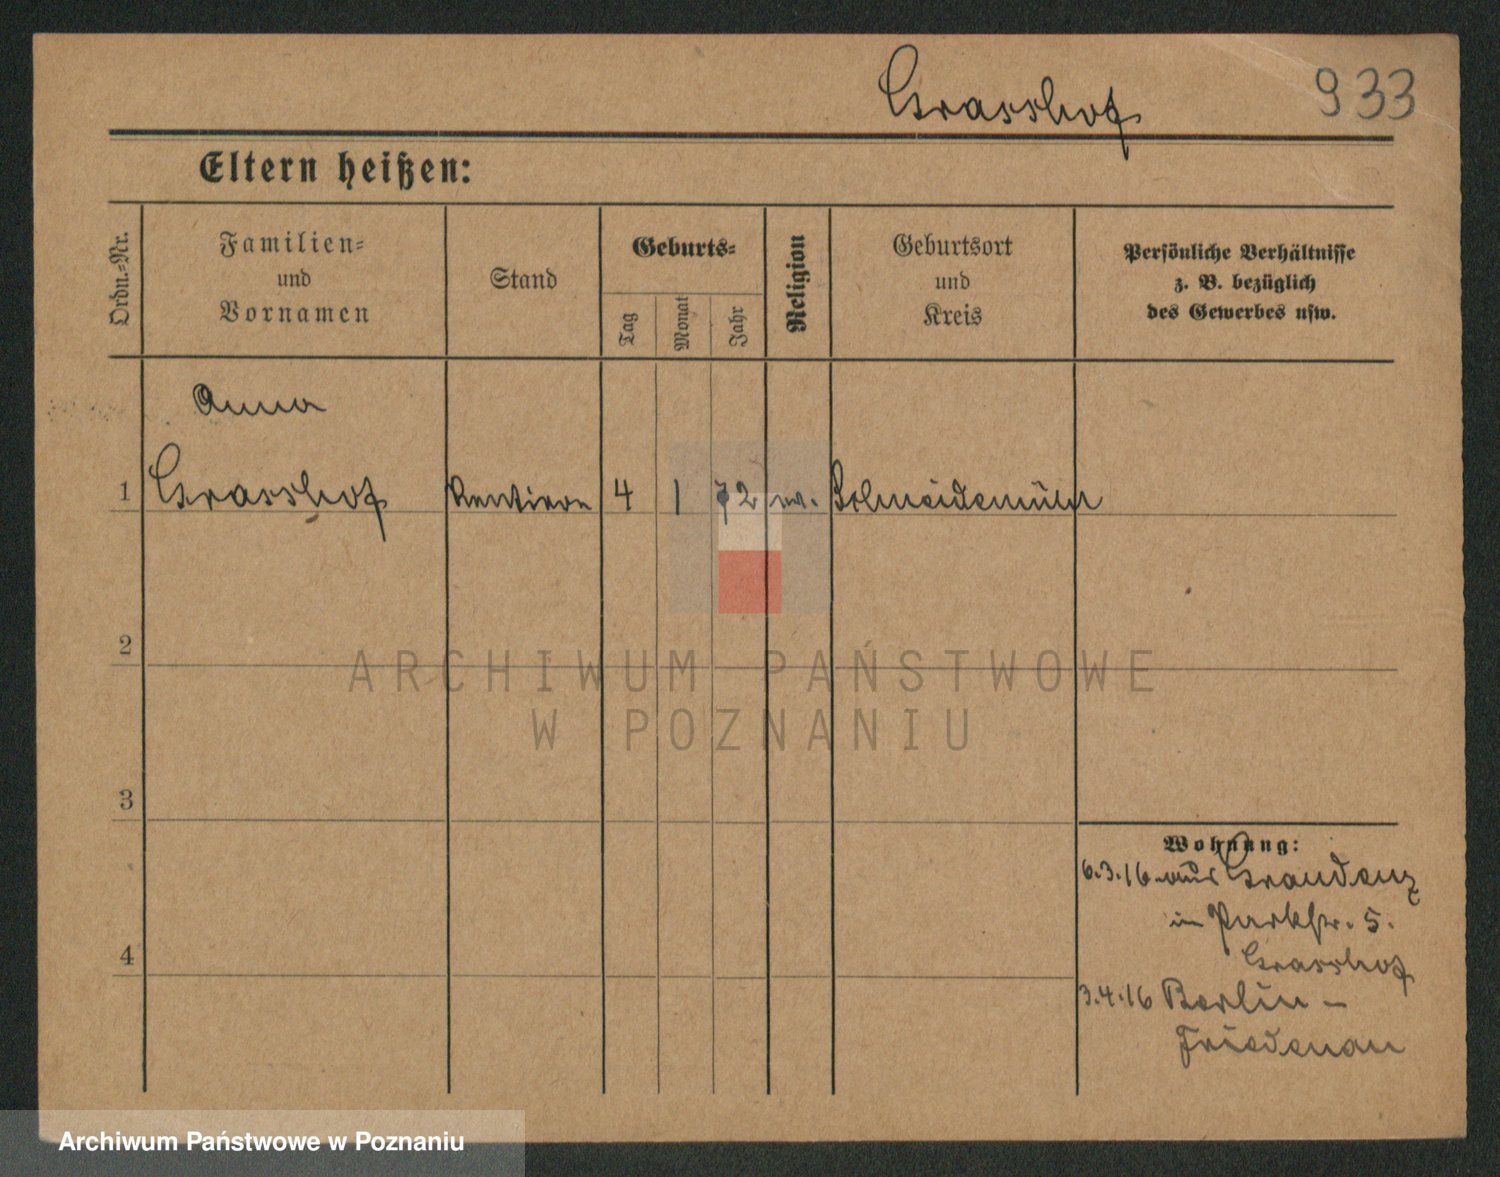 Grasshof 933
Eltern heißen:
Ordn.-Nr.
Familien-
und
Vornamen
Stand
Geburts-
Tag
Monat
Jahr
Religion
Geburtsort
und
Kreis
Persönliche Verhältnisse
z. B. bezüglich
des Gewerbes usw.
Anna
1 Grasshof Rentiere 4 1 72 Schneidemühl
2
ARCHIWUM PAŃSTWOWE
W POZNANIU
3
Wohnung:
6.3.16 aus Graudenz
in Parkstr. 5.
Grasshof
4
3.4.16 Berlin-
Friedenau
Archiwum Państwowe w Poznaniu